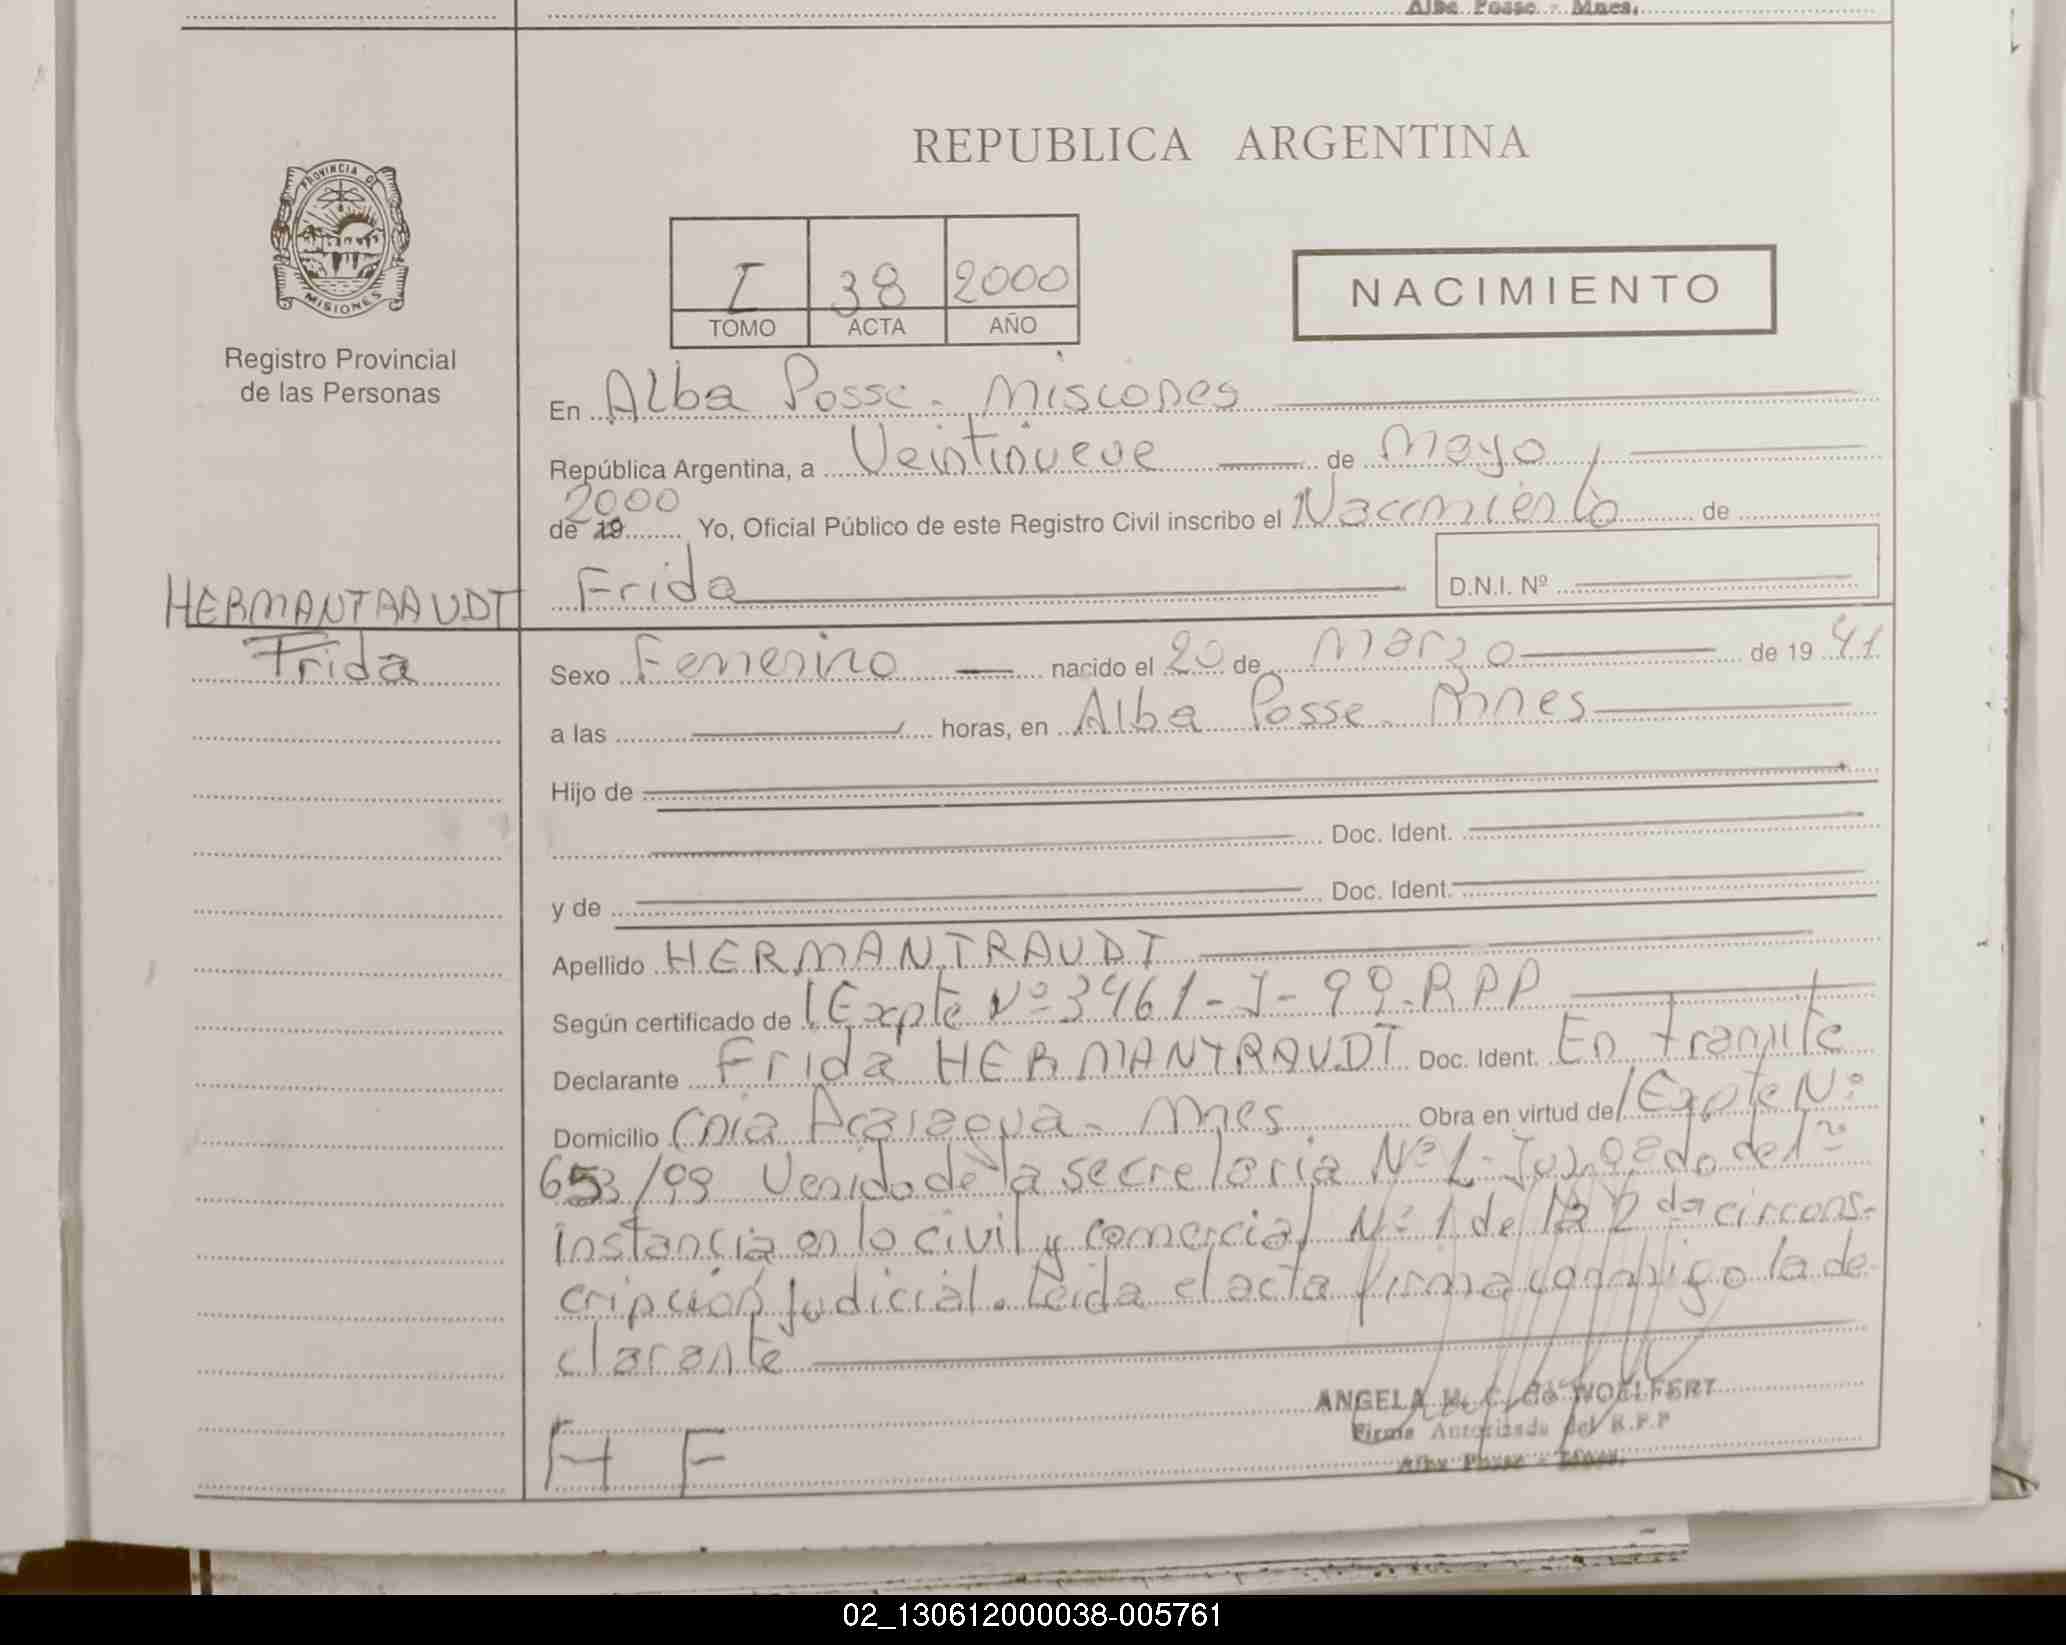 Alba Posse - Mnes.
REPUBLICA ARGENTINA
PROVINCIA DE
MISIONES
Registro Provincial
de las Personas
I 38 2000
TOMO ACTA AÑO
NACIMIENTO
En Alba Posse - Misiones
República Argentina, a Veintinueve de Mayo
de 19 2000 Yo, Oficial Público de este Registro Civil inscribo el Nacimiento de
HERMANTRAUDT
Frida
Frida D.N.I. Nº
Sexo Femenino nacido el 20 de Marzo de 19 41
a las horas, en Alba Posse - Mnes
Hijo de
Doc. Ident.
y de Doc. Ident.
Apellido HERMANTRAUDT
Según certificado de /Expte Nº 3461-J-99-RPP
Declarante Frida HERMANTRAUDT Doc. Ident. En tramite
Domicilio Cnia Acaragua - Mnes Obra en virtud de /Expte Nº
653/99 Venido de la secretaria Nº 1 - Juzgado de 1ra
instancia en lo civil y comercial Nº 1 de la 2da circons-
cripción Judicial. Leida el acta firma conmigo la de-
clarante
H F
ANGELA H. C. de WOELFERT
Firma Autorizada del R.P.P
Alba Posse - Mnes.
02_130612000038-005761